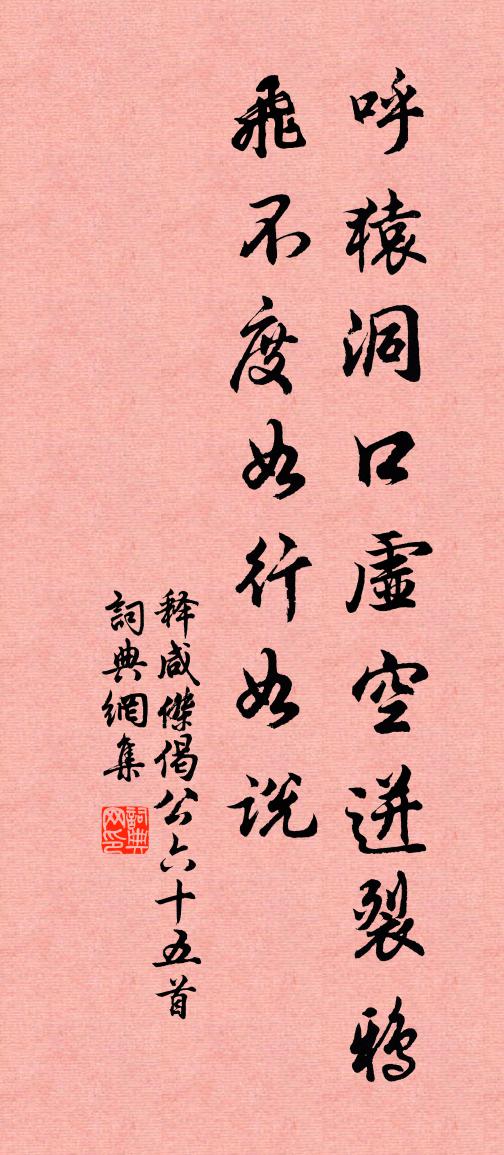 呼猿洞口虛空迸裂鴉
飛不度如行如說
释咸傑偈公六十五首
詞典網集
詞典网印